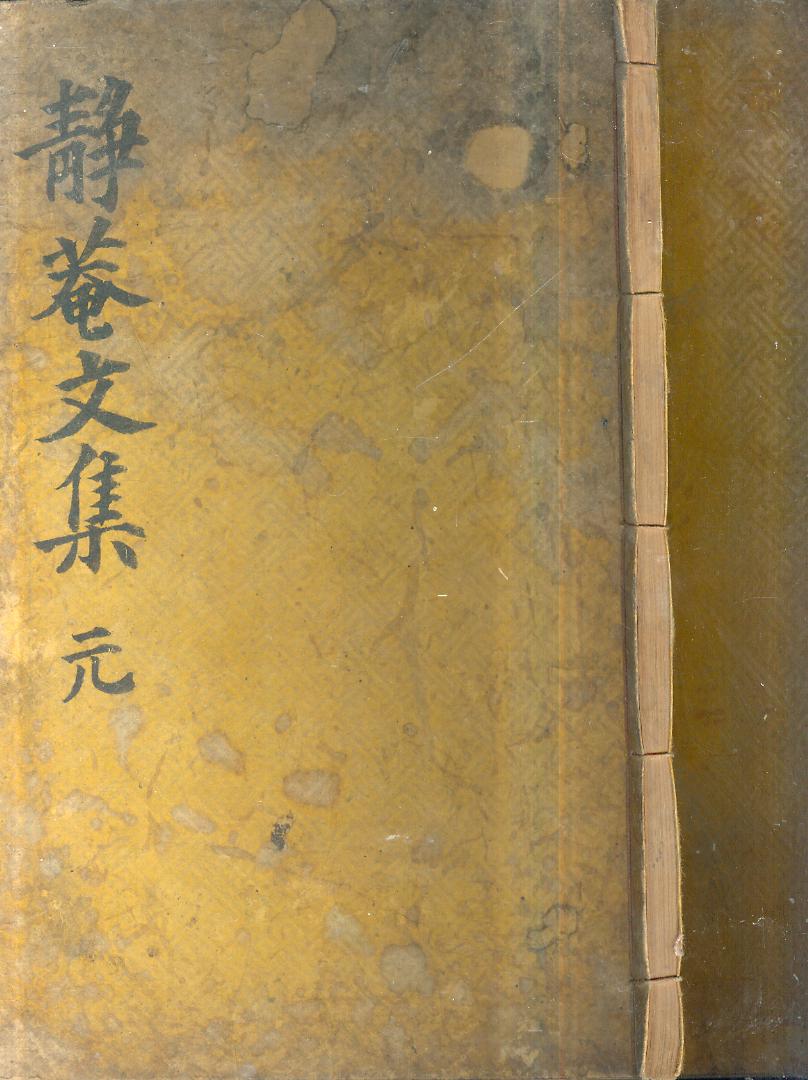 靜菴文集 元